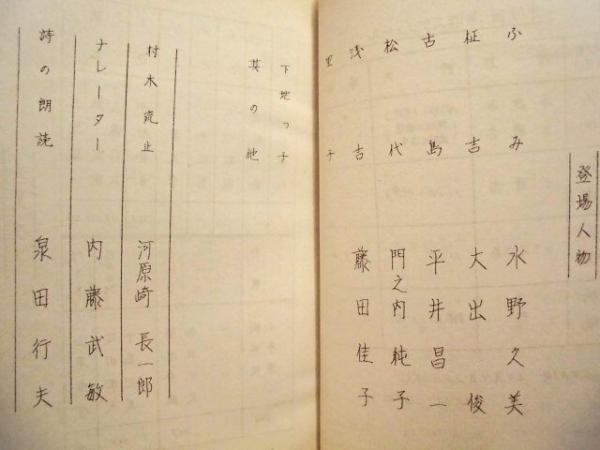 登場人物
ふみ 水野久美
征吉 大出俊
古島 平井昌一
松代 門之内純子
浅古 藤田佳子
里子
下地っ子
其の他
村木流止 河原崎長一郎
ナレーター 内藤武敏
詩の朗読 泉田行夫